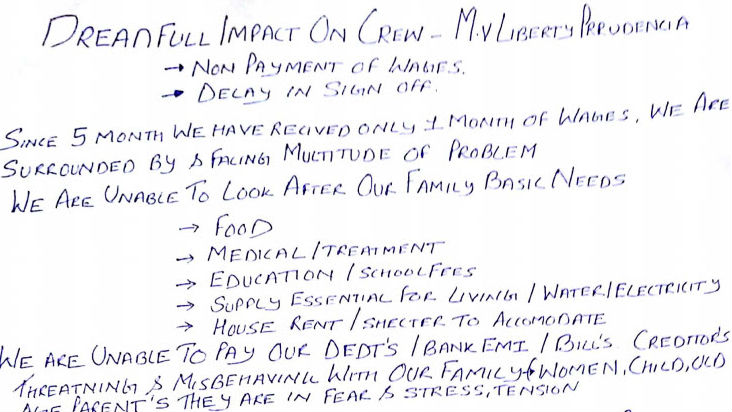 DREADFULL IMPACT ON CREW – M.V LIBERTY PRRUDENCIA
→ NON PAYMENT OF WAGES.
→ DELAY IN SIGN OFF.
SINCE 5 MONTH WE HAVE RECIVED ONLY 1 MONTH OF WAGES, WE ARE
SURROUNDED BY & FACING MULTITUDE OF PROBLEM
WE ARE UNABLE TO LOOK AFTER OUR FAMILY BASIC NEEDS
→ FOOD
→ MEDICAL / TREATMENT
→ EDUCATION / SCHOOL FEES
→ SUPPLY ESSENTIAL FOR LIVING / WATER / ELECTRICITY
→ HOUSE RENT / SHELTER TO ACCOMODATE
WE ARE UNABLE TO PAY OUR DEDT'S / BANK EMI / BILL'S CREDITOR'S
THREATNING & MISBEHAVING WITH OUR FAMILY WOMEN, CHILD, OLD
AGE PARENT'S THEY ARE IN FEAR & STRESS, TENSION